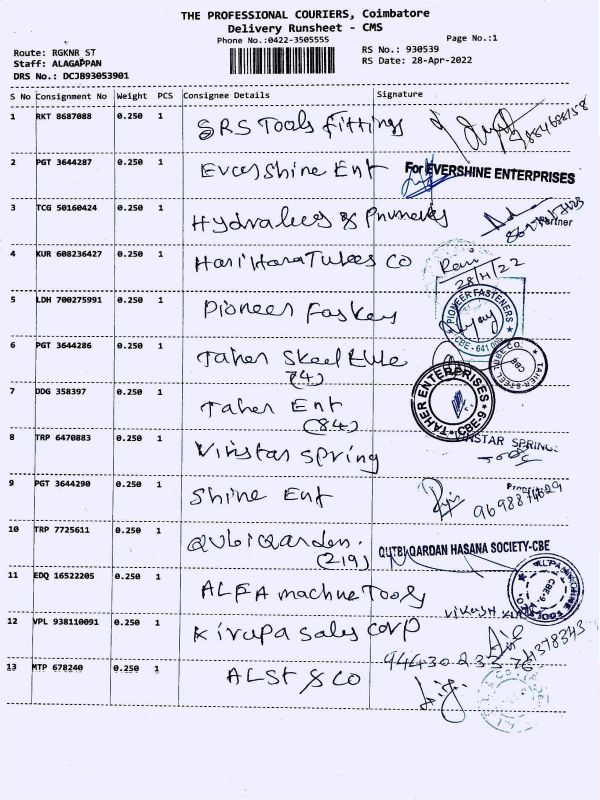 THE PROFESSIONAL COURIERS, Coimbatore
Delivery Runsheet - CMS
Phone No.:0422-3505555
Page No.:1
Route: RGKNR ST
RS No.: 930539
Staff: ALAGAPPAN
RS Date: 28-Apr-2022
DRS No.: DCJB93053901
S No Consignment No Weight PCS Consignee Details Signature
1 RKT 8687088 0.250 1 SRS Tools fittings
2 PGT 3644287 0.250 1 Evershine Ent For EVERSHINE ENTERPRISES
3 TCG 50160424 0.250 1 Hydraulics &
4 KUR 608236427 0.250 1 Hari Hara Tubes CO Ravi
28/4/22
5 LDH 700275991 0.250 1 Pioneer PIONEER FASTENERS
CBE-641
6 PGT 3644286 0.250 1 Taher Steel tube TAHER STEEL TUBE CO.
(74) CBE
7 DDG 358397 0.250 1 Taher Ent TAHER ENTERPRISES
(84) CBE-9
8 TRP 6470883 0.250 1 Vinstar spring NSTAR SPRING
9 PGT 3644290 0.250 1 Shine Ent
10 TRP 7725611 0.250 1 QUTBI QARDAN HASANA SOCIETY-CBE
(219)
11 EDQ 16522205 0.250 1 ALFA machine Tools
CBE-9
12 VPL 938110091 0.250 1 Kirupa sales corp VIKASH
94430 23376
13 MTP 678240 0.250 1 & CO